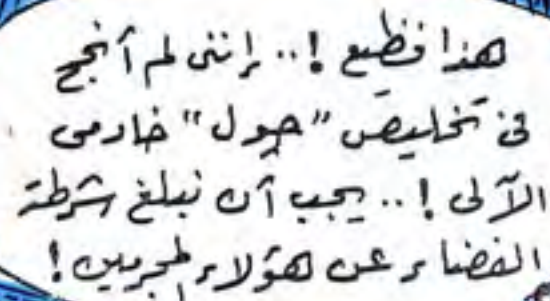 هذا فظيع !.. إننى لم أنجح
فى تخليص "جول" خادمى
الآلى !.. يجب أن نبلغ شرطة
الفضاء عن هؤلاء المجرمين !